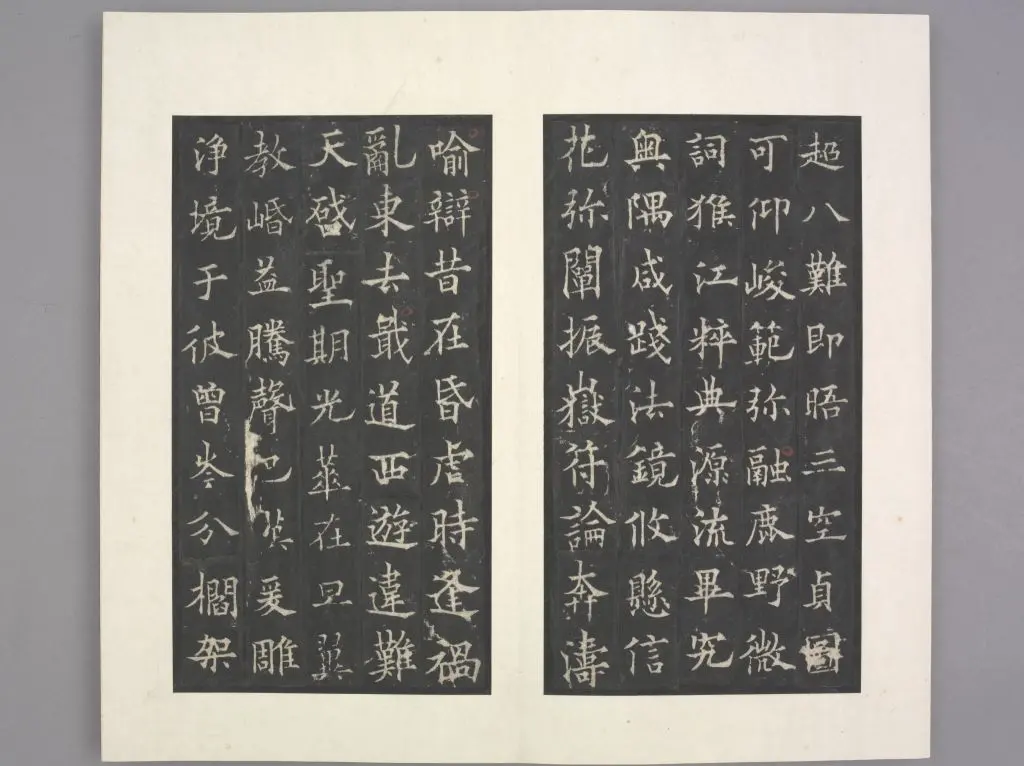 超八難即晤三空貞圖
可仰峻範弥融鹿野微
詞猴江粹典源流畢究
奧隅咸踐法鏡攸懸信
花弥闡振嶽符論奔濤
喻辯昔在昏虐時逢禍
亂東去戢道西遊違難
天啓聖期光華在旦翼
教㟭益騰聲巴漢爰雕
浄境于彼曾岑分櫩架